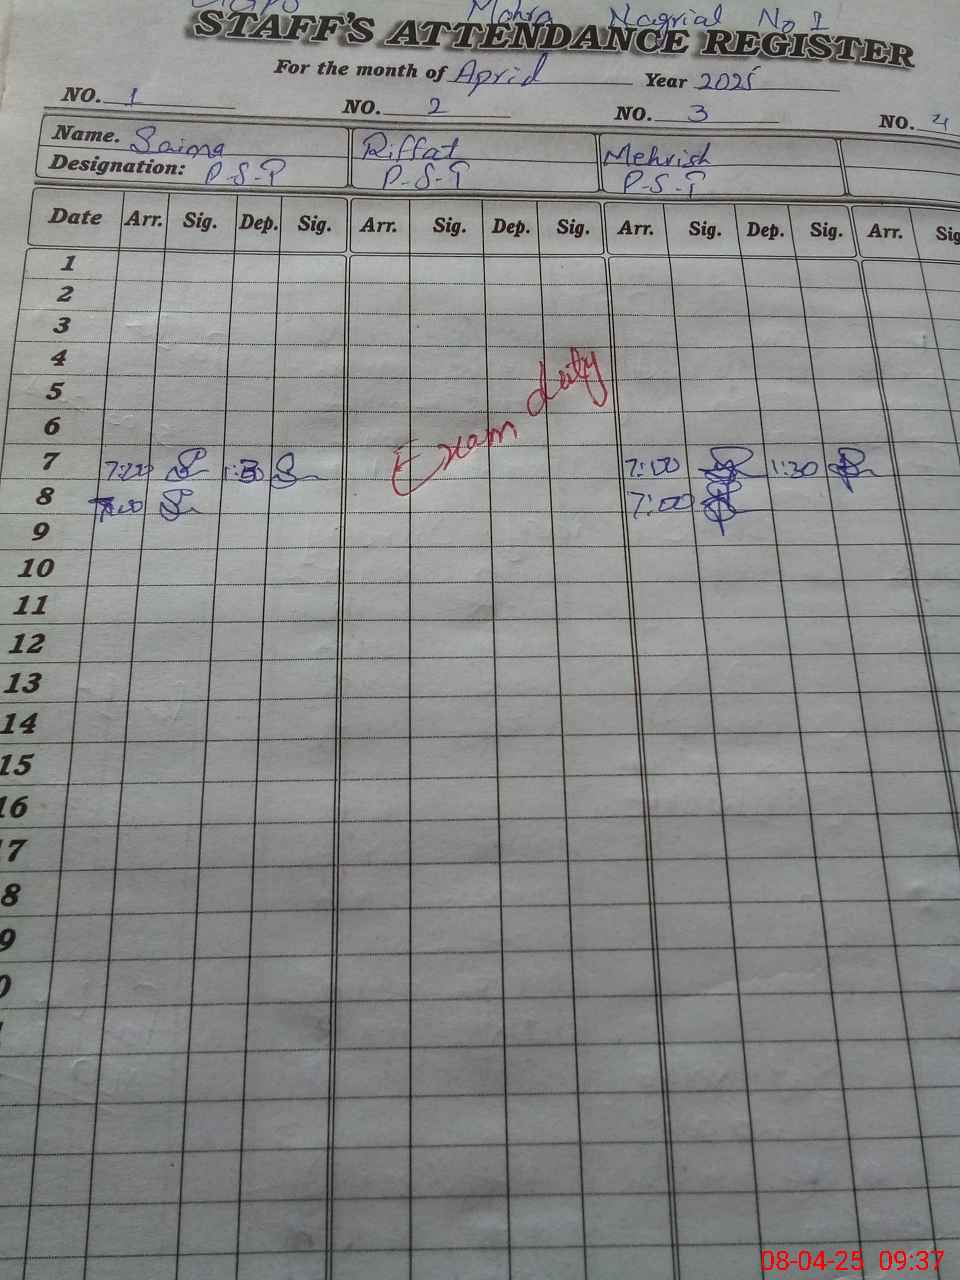 Mohra Nagrial No 1
STAFF'S ATTENDANCE REGISTER
For the month of April Year 2025
NO. 1 NO. 2 NO. 3 NO. 4
Name. Saima Riffat Mehrish
Designation: P-S-T P-S-T P-S-T
Date Arr. Sig. Dep. Sig. Arr. Sig. Dep. Sig. Arr. Sig. Dep. Sig. Arr. Sig
1
2
3
4
5
6
Exam duty
7 7:00 1:30 7:00 1:30
8 7:00 7:00
9
10
11
12
13
14
15
16
7
8
9
0
08-04-25 09:37